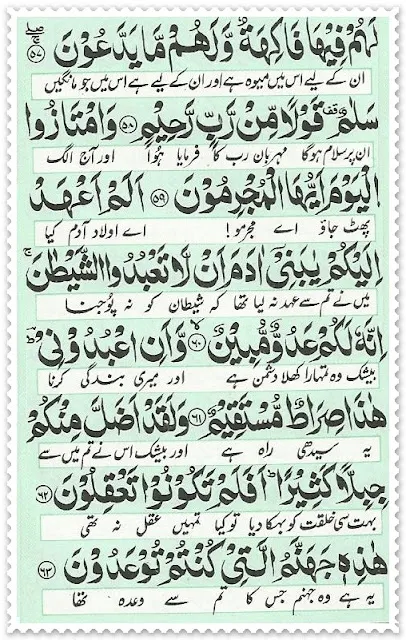 لَهُمْ فِيْهَا فَاكِهَةٌ وَّلَهُمْ مَّا يَدَّعُوْنَ ﴿٥٧﴾
ان کے لیے اس میں میوہ ہے اور ان کے لیے ہے اس میں جو مانگیں
سَلٰمٌ قف قَوْلًا مِّنْ رَّبٍّ رَّحِيْمٍ ﴿٥٨﴾ وَامْتَازُوا
ان پر سلام ہوگا مہربان رب کا فرمایا ہُوا اور آج الگ
الْيَوْمَ اَيُّهَا الْمُجْرِمُوْنَ ﴿٥٩﴾ اَلَمْ اَعْهَدْ
پھٹ جاؤ اے مجرمو! اے اولاد آدم کیا
اِلَيْكُمْ يٰبَنِيْٓ اٰدَمَ اَنْ لَّا تَعْبُدُوا الشَّيْطٰنَ ج
میں نے تم سے عہد نہ لیا تھا کہ شیطان کو نہ پوجنا
اِنَّهٗ لَكُمْ عَدُوٌّ مُّبِيْنٌ ﴿٦٠﴾ وَّاَنِ اعْبُدُوْنِيْ ط
بیشک وہ تمہارا کھلا دشمن ہے اور میری بندگی کرنا
هٰذَا صِرَاطٌ مُّسْتَقِيْمٌ ﴿٦١﴾ وَلَقَدْ اَضَلَّ مِنْكُمْ
یہ سیدھی راہ ہے اور بیشک اس نے تم میں سے
جِبِلًّا كَثِيْرًا ط اَفَلَمْ تَكُوْنُوْا تَعْقِلُوْنَ ﴿٦٢﴾
بہت سی خلقت کو بہکا دیا تو کیا تمہیں عقل نہ تھی
هٰذِهٖ جَهَنَّمُ الَّتِيْ كُنْتُمْ تُوْعَدُوْنَ ﴿٦٣﴾
یہ ہے وہ جہنم جس کا تم سے وعدہ تھا